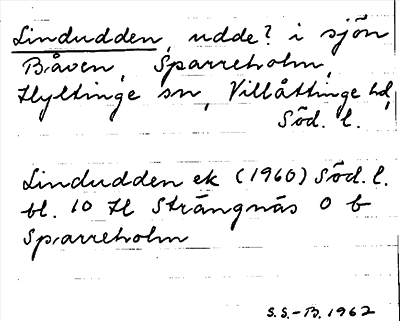 Lindudden, udde? i sjön
Båven, Sparreholm,
Hyltinge sn, Villåttinge hd,
Söd. l.
Lindudden ek (1960) Söd. l.
bl. 10 H Strängnäs O b
Sparreholm
S.S.-B. 1962